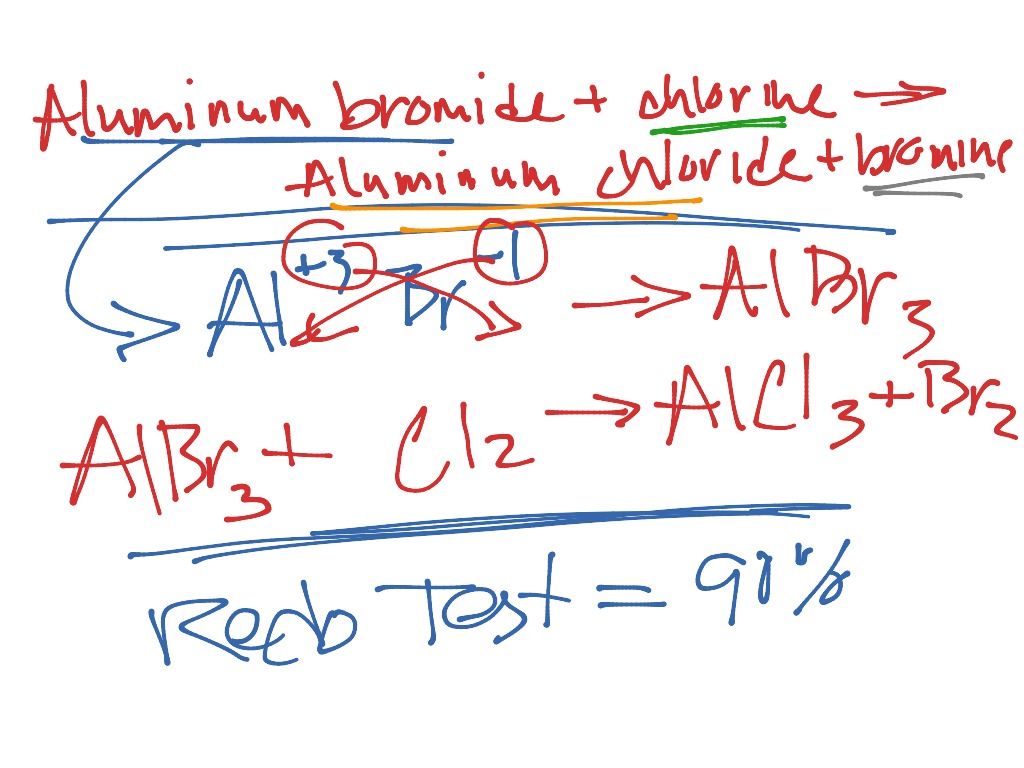 Aluminum bromide + chlorine →
Aluminum chloride + bromine
Al +3 Br -1 → AlBr3
AlBr3 + Cl2 → AlCl3 + Br2
Redo Test =